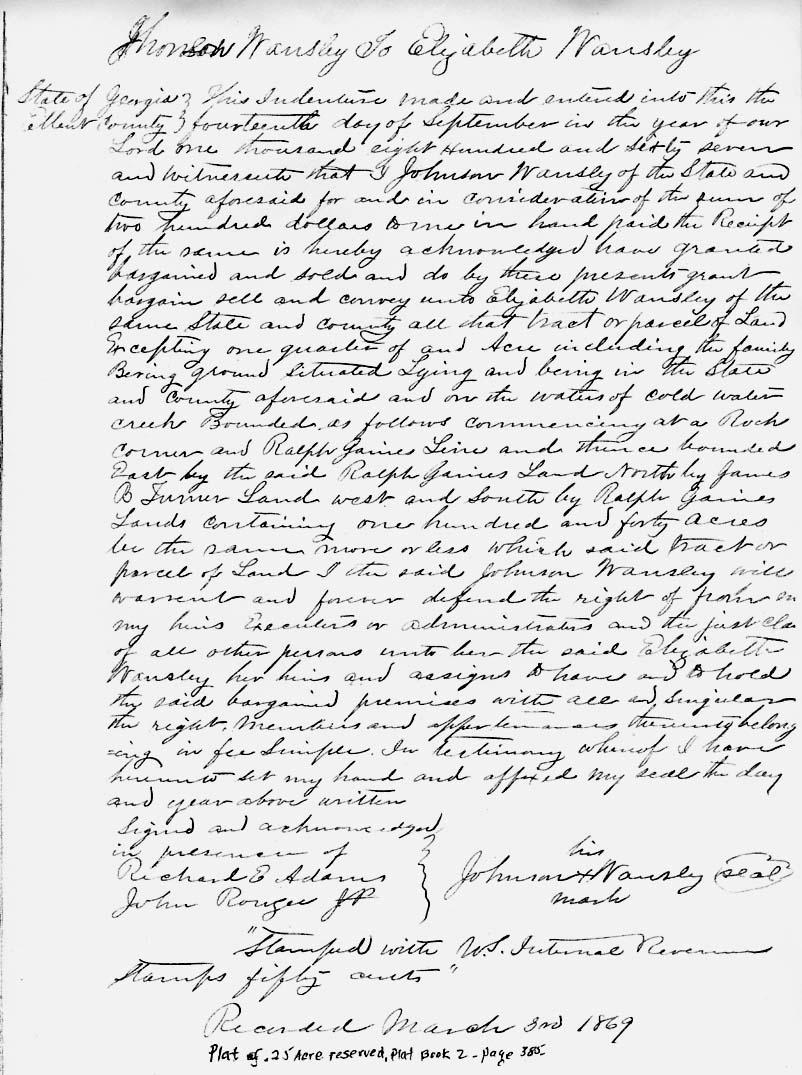 Jhonson Wansley To Elizabeth Wansley
State of Georgia } This Indenture made and entered into this the
Elbert County } fourteenth day of September in the year of our
Lord one thousand eight Hundred and Sixty seven
and witnesseth that I Johnson Wansley of the State and
County aforesaid for and in consideration of the sum of
two hundred dollars to me in hand paid the Receipt
of the same is hereby acknowledged have granted
bargained and sold and do by these presents grant
bargain sell and convey unto Elizabeth Wansley of the
same State and county all that tract or parcel of Land
Excepting one quarter of and Acre including the family
Bering ground Situated Lying and being in the State
and County aforesaid and on the waters of cold water
creek Bounded as follows commencing at a Rock
corner and Ralph Gaines Line and thence bounded
East by the said Ralph Gaines Land North by James
B Turner Land west and South by Ralph Gaines
Lands containing one hundred and forty acres
be the same more or less which said tract or
parcel of Land I the said Johnson Wansley will
warrent and forever defend the right of from
my heirs Executers or administrators and the just cla
of all other persons unto her the said Elizabeth
Wansley her heirs and assigns to have and to hold
the said bargained premises with all and Singular
the right, members and appertenances thereunto belong
=ing in fee Simple. In testimony whereof I have
hereunto set my hand and affixed my seal the day
and year above written
Signed and acknowledged
in presence of
Richard E Adams
John Rouzee JP
his
Johnson X Wansley seal
mark
"Stamped with U.S. Internal Revenue
Stamps fifty cents"
Recorded March 3rd 1869
Plat of .25 Acre reserved, Plat Book 2 - page 385-